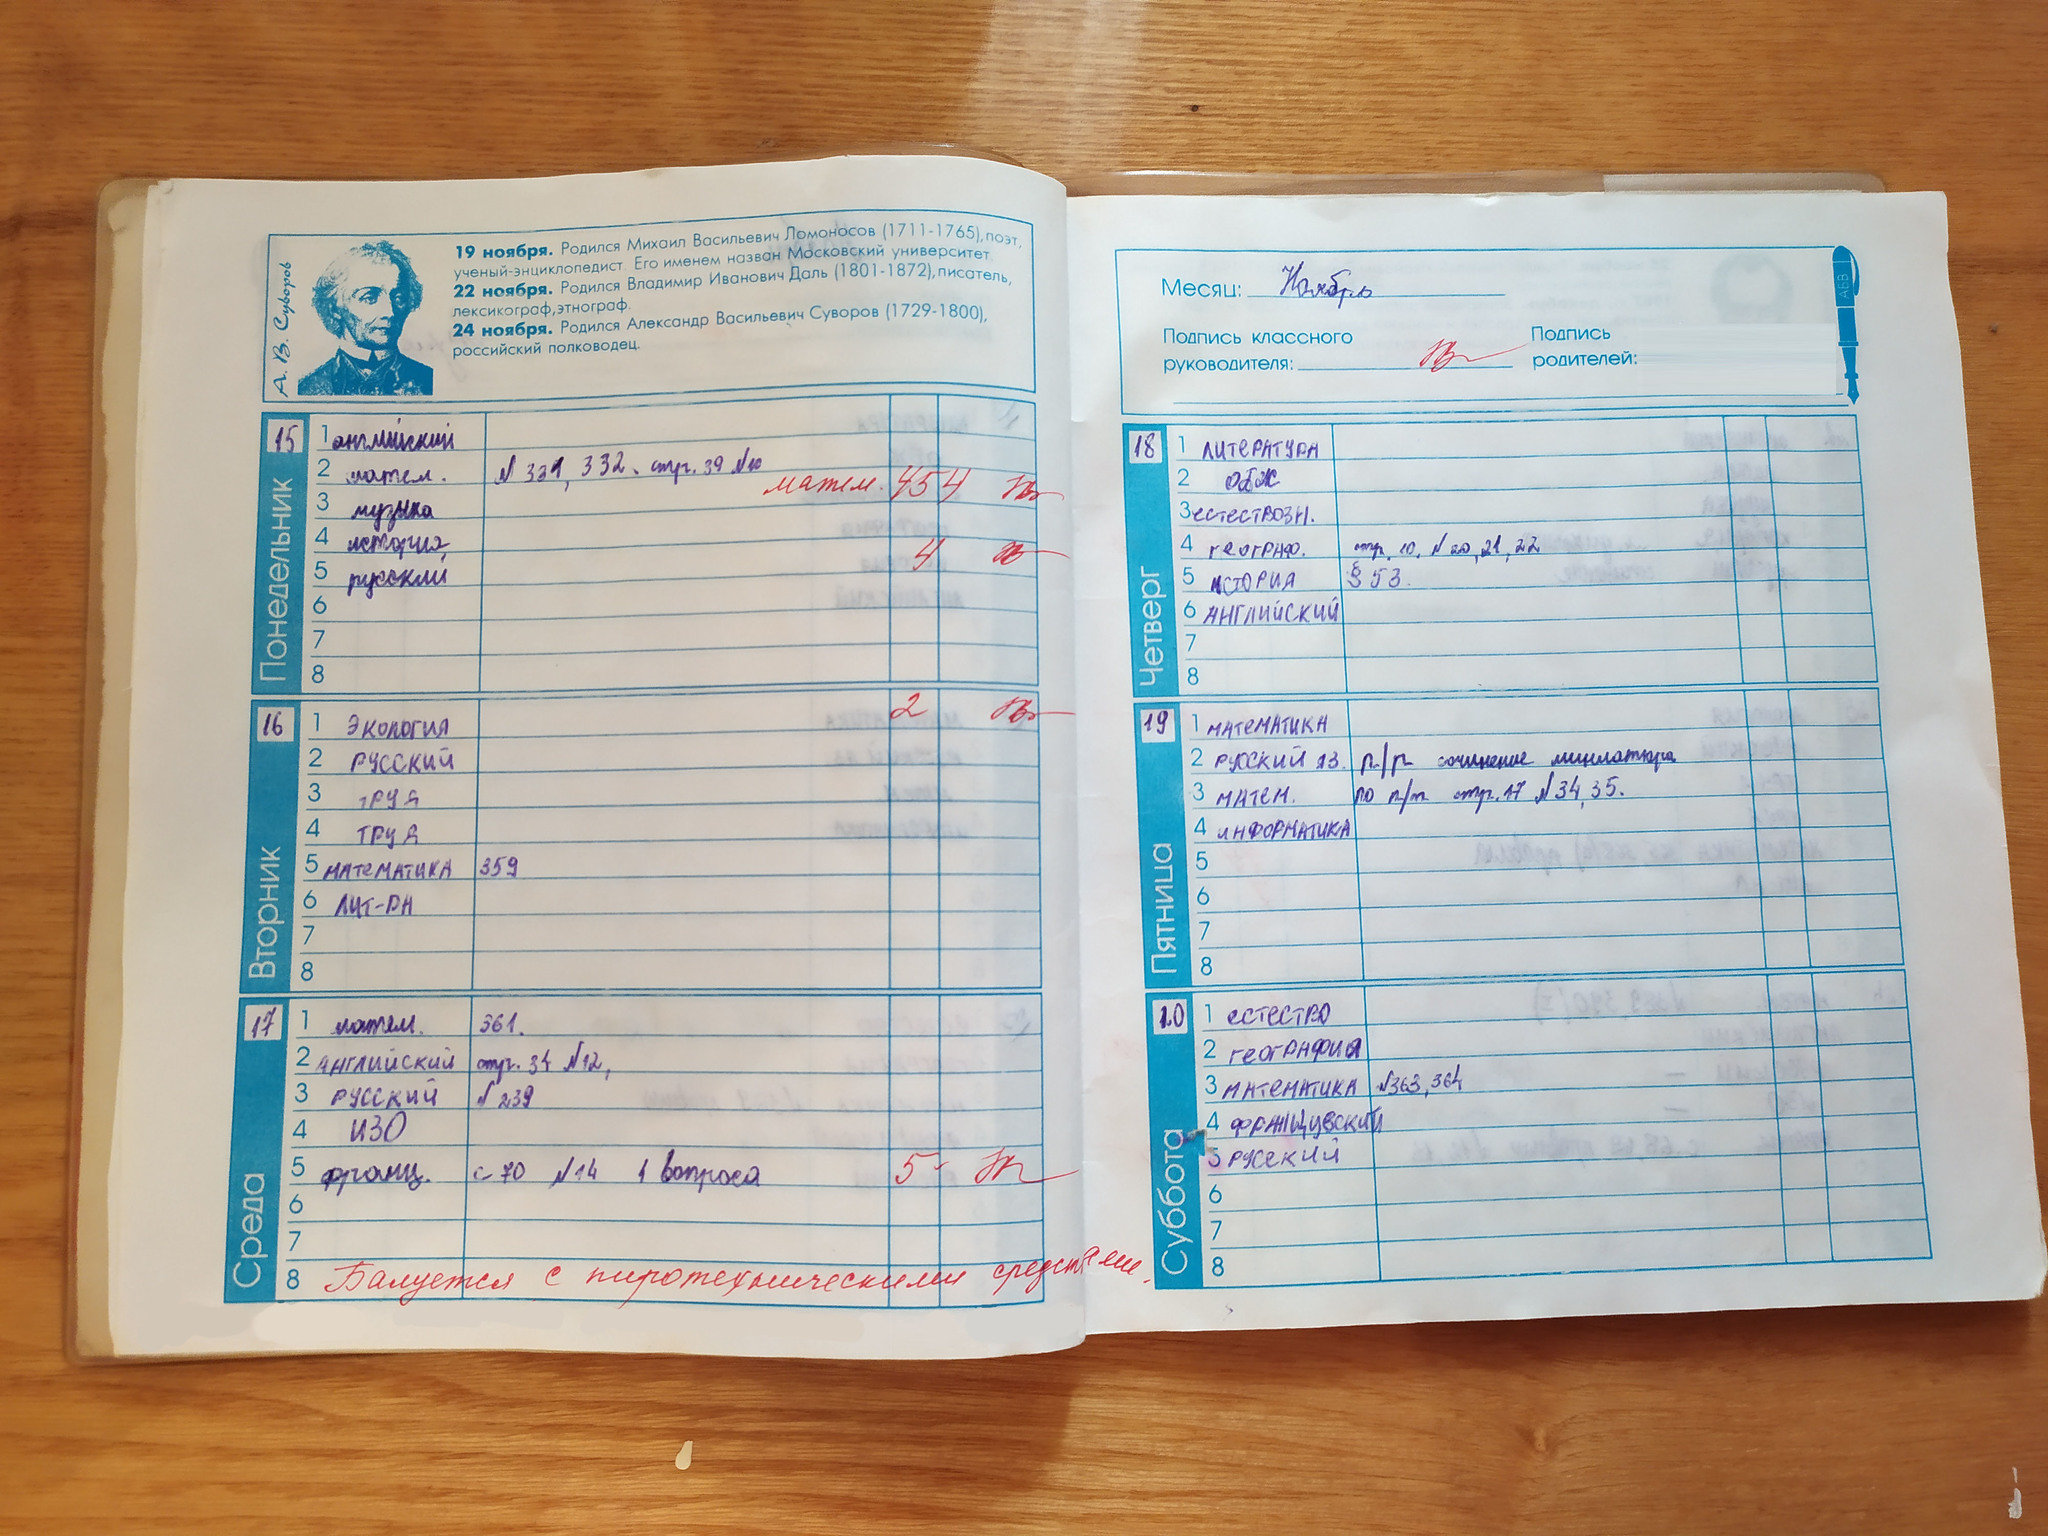 А. В. Суворов
19 ноября. Родился Михаил Васильевич Ломоносов (1711-1765), поэт,
ученый-энциклопедист. Его именем назван Московский университет.
22 ноября. Родился Владимир Иванович Даль (1801-1872), писатель,
лексикограф, этнограф.
24 ноября. Родился Александр Васильевич Суворов (1729-1800),
российский полководец.
Понедельник
15
1 английский
2 матем. № 331, 332. стр. 39 №10
матем. 454
3 музыка
4 история 4
5 русский
6
7
8
Вторник
16
1 экология 2
2 русский
3 труд
4 труд
5 математика 359
6 лит-ра
7
8
Среда
17
1 матем. 361.
2 английский стр. 34 №12,
3 русский №239
4 ИЗО
5 франц. с 70 №14 1 вопроса 5-
6
7
8 Балуется с пиротехническими средствами.
Месяц: Ноябрь
Подпись классного
руководителя:
Подпись
родителей:
АБВ
Четверг
18
1 литература
2 ОБЖ
3 естествозн.
4 географ. стр. 10, №20, 21, 22
5 история § 53.
6 английский
7
8
Пятница
19
1 математика
2 русский яз. р/р сочинение миниатюра
3 матем. по п/т стр. 17 №34, 35.
4 информатика
5
6
7
8
Суббота
20
1 естество
2 география
3 математика №363, 364
4 французский
5 русский
6
7
8